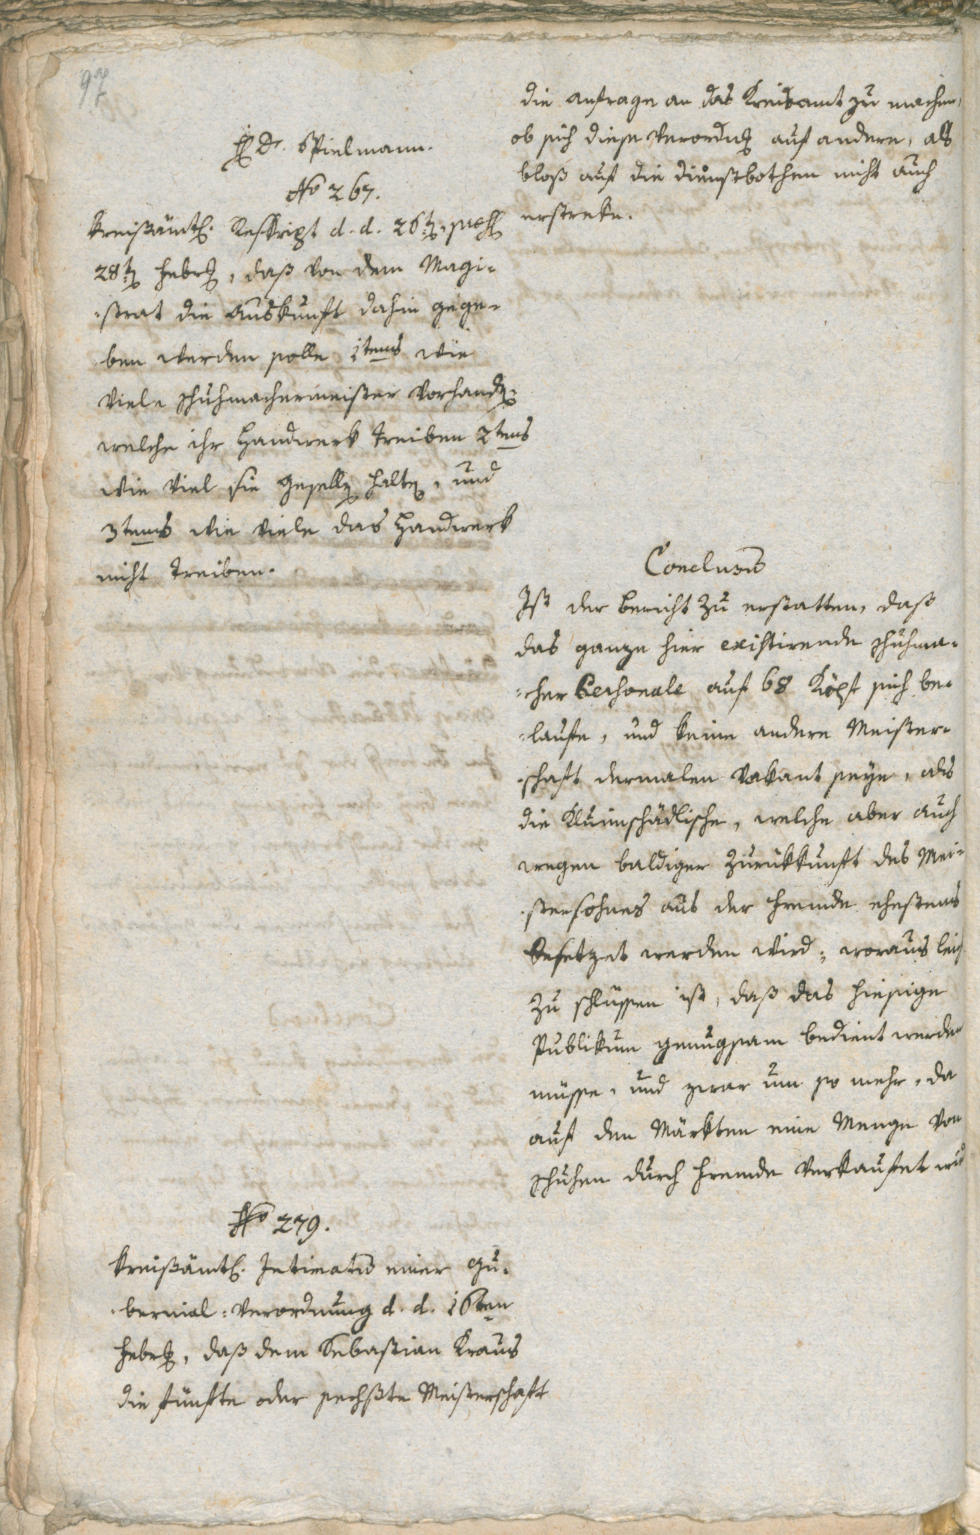 97
H Dr. Spielmann.
No 267.
Kreißämtl. Reskript d. d. 26t. praes.
28t. Febr., daß von dem Magi-
strat die Auskunft dahin gege-
ben werden solle 1tens wie
viele Schuhmachermeister vorhanden
welche ihr Handwerk treiben 2tens
wie viel sie Geselln halten, und
3tens wie viele das Handwerk
nicht treiben.
No 279.
Kreißämtl. Intimatum einer Gu-
bernial-Verordnung d. d. 16ten
Febr., daß dem Sebastian Kraus
die fünfte oder sechste Meisterschaft
die Anfrage an das Kreisamt zu machen,
ob sich diese Verordng auf andere, als
bloß auf die Dienstbothen nicht auch
erstreke.
Conclusum
Ist der Bericht zu erstatten, daß
das ganze hier existirende Schuhma-
cher Personale auf 68 Köpf sich be-
laufe, und keine andere Meister-
schaft dermalen vakant seye, als
die Kluimschädlische, welche aber auch
wegen baldiger Zurükkunft des Mei-
stersohnes aus der Fremde ehestens
besetzet werden wird; woraus leich
zu schlüssen ist, daß das hiesige
Publikum genugsam bedient werden
müsse, und zwar um so mehr, da
auf den Märkten eine Menge von
Schuhen durch Fremde verkaufet wird